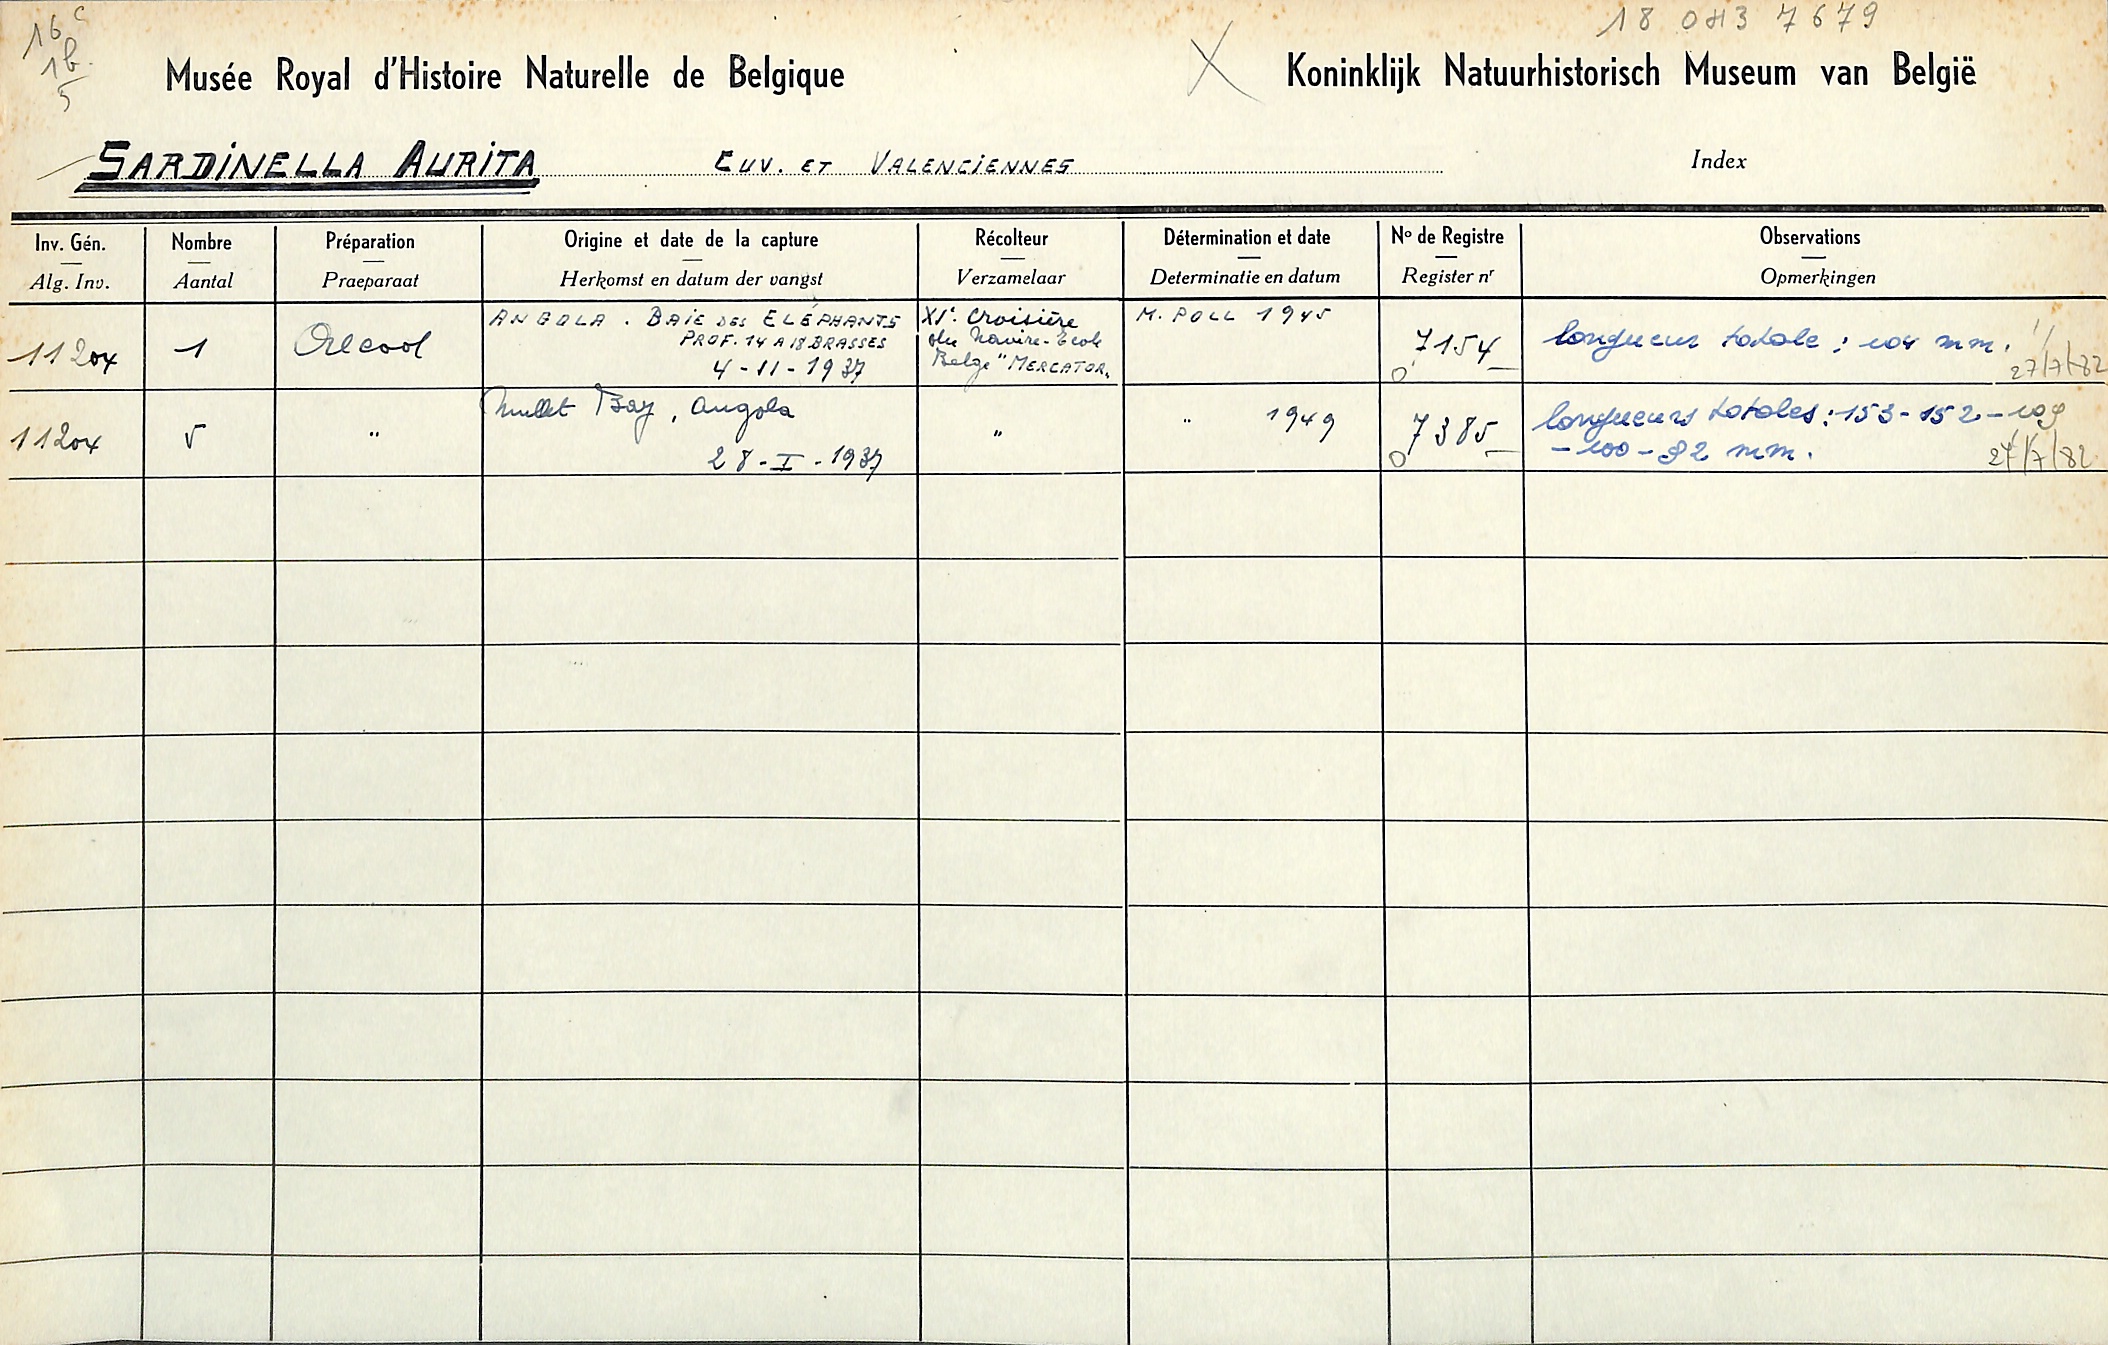 16 c
1b.
5
18 043 7679
X
Musée Royal d'Histoire Naturelle de Belgique
Koninklijk Natuurhistorisch Museum van België
SARDINELLA AURITA CUV. ET VALENCIENNES
Index
Inv. Gén. Nombre Préparation Origine et date de la capture Récolteur Détermination et date No de Registre Observations
Alg. Inv. Aantal Praeparaat Herkomst en datum der vangst Verzamelaar Determinatie en datum Register nr Opmerkingen
11204 1 Alcool
ANGOLA. BAIE DES ELÉPHANTS
PROF. 14 A 18 BRASSES
4-11-1937
XIe. Croisière
du Navire-Ecole
Belge "MERCATOR"
M. POLL 1945
7154
O
longueur totale : 104 mm.
27/7/82
11204 5 "
Mullet Bay, Angola
28-I-1937
"
" 1949
7385
O
longueurs totales : 153-152-109
-100-92 mm.
27/7/82